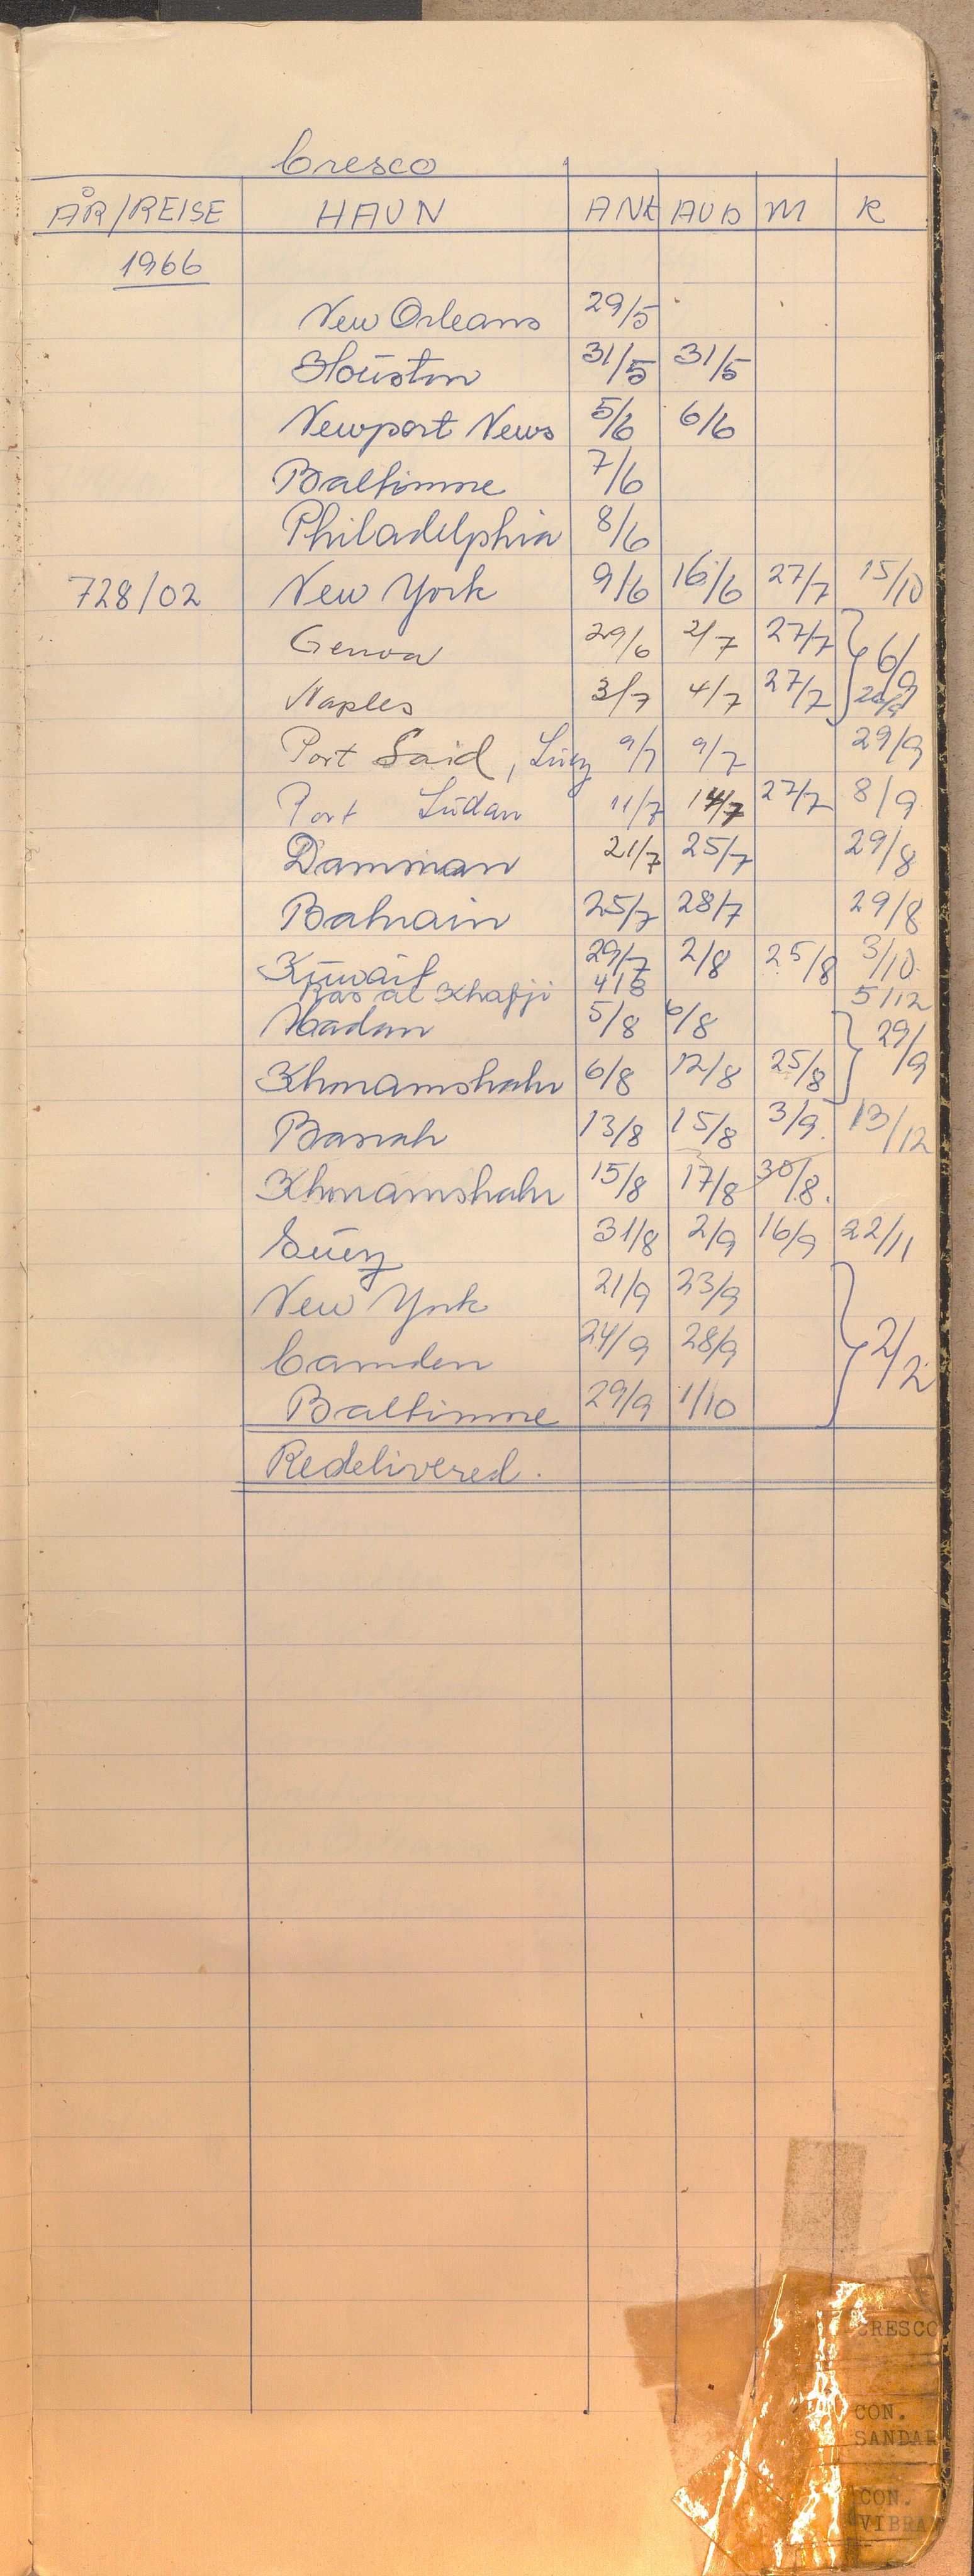 Cresco
ÅR/REISE HAVN ANK AVG M R
1966
New Orleans 29/5
Houston 31/5 31/5
Newport News 5/6 6/6
Baltimore 7/6
Philadelphia 8/6
728/02 New York 9/6 16/6 27/7 15/10
Genoa 29/6 2/7 27/7 6/9
Naples 3/7 4/7 27/7
Port Said, Suez 9/7 9/7 29/9
Port Sudan 11/7 14/7 27/7 8/9
Damman 21/7 25/7 29/8
Bahrain 25/7 28/7 29/8
Kuwait 29/7 2/8 25/8 3/10
Ras al Khafji 4/8 5/12
Abadan 5/8 6/8 29/9
Khoramshahr 6/8 12/8 25/8
Basrah 13/8 15/8 3/9 13/12
Khoramshahr 15/8 17/8 30/8
Suez 31/8 2/9 16/9 22/11
New York 21/9 23/9
Camden 24/9 28/9 2/2
Baltimore 29/9 1/10
Redelivered.
CRESCO
CON.
SANDAR
CON.
VIBRA